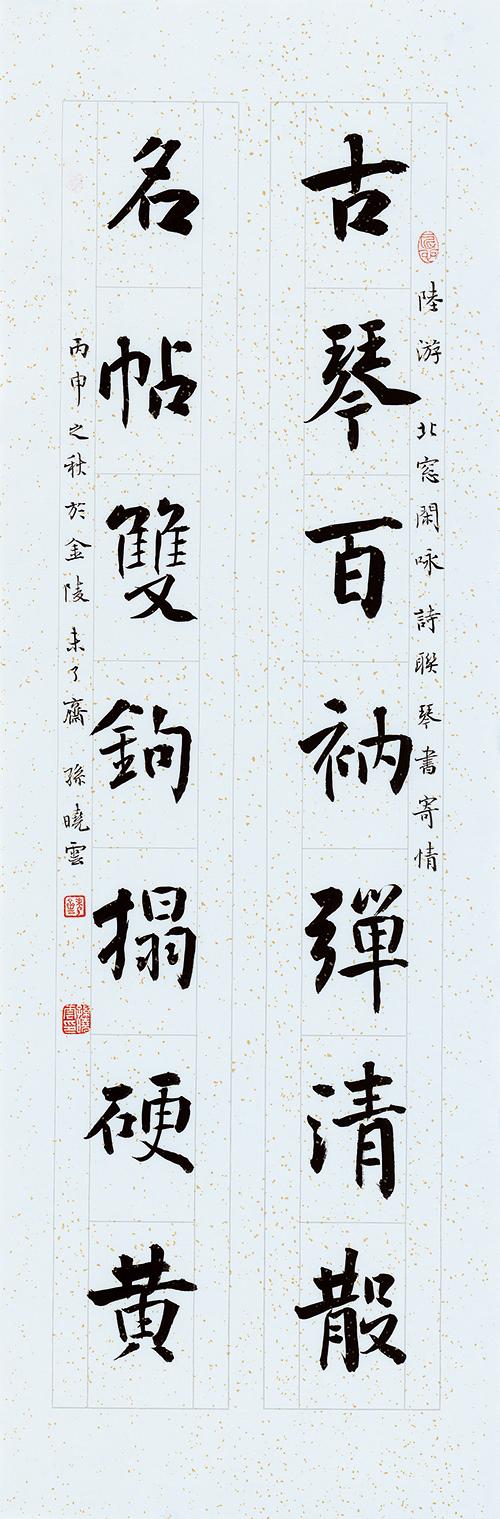 陸游 北窓閑咏 詩聯 琴書寄情
古琴百衲彈清散
名帖雙鉤搨硬黄
丙申之秋於金陵 未了齋 孫曉雲